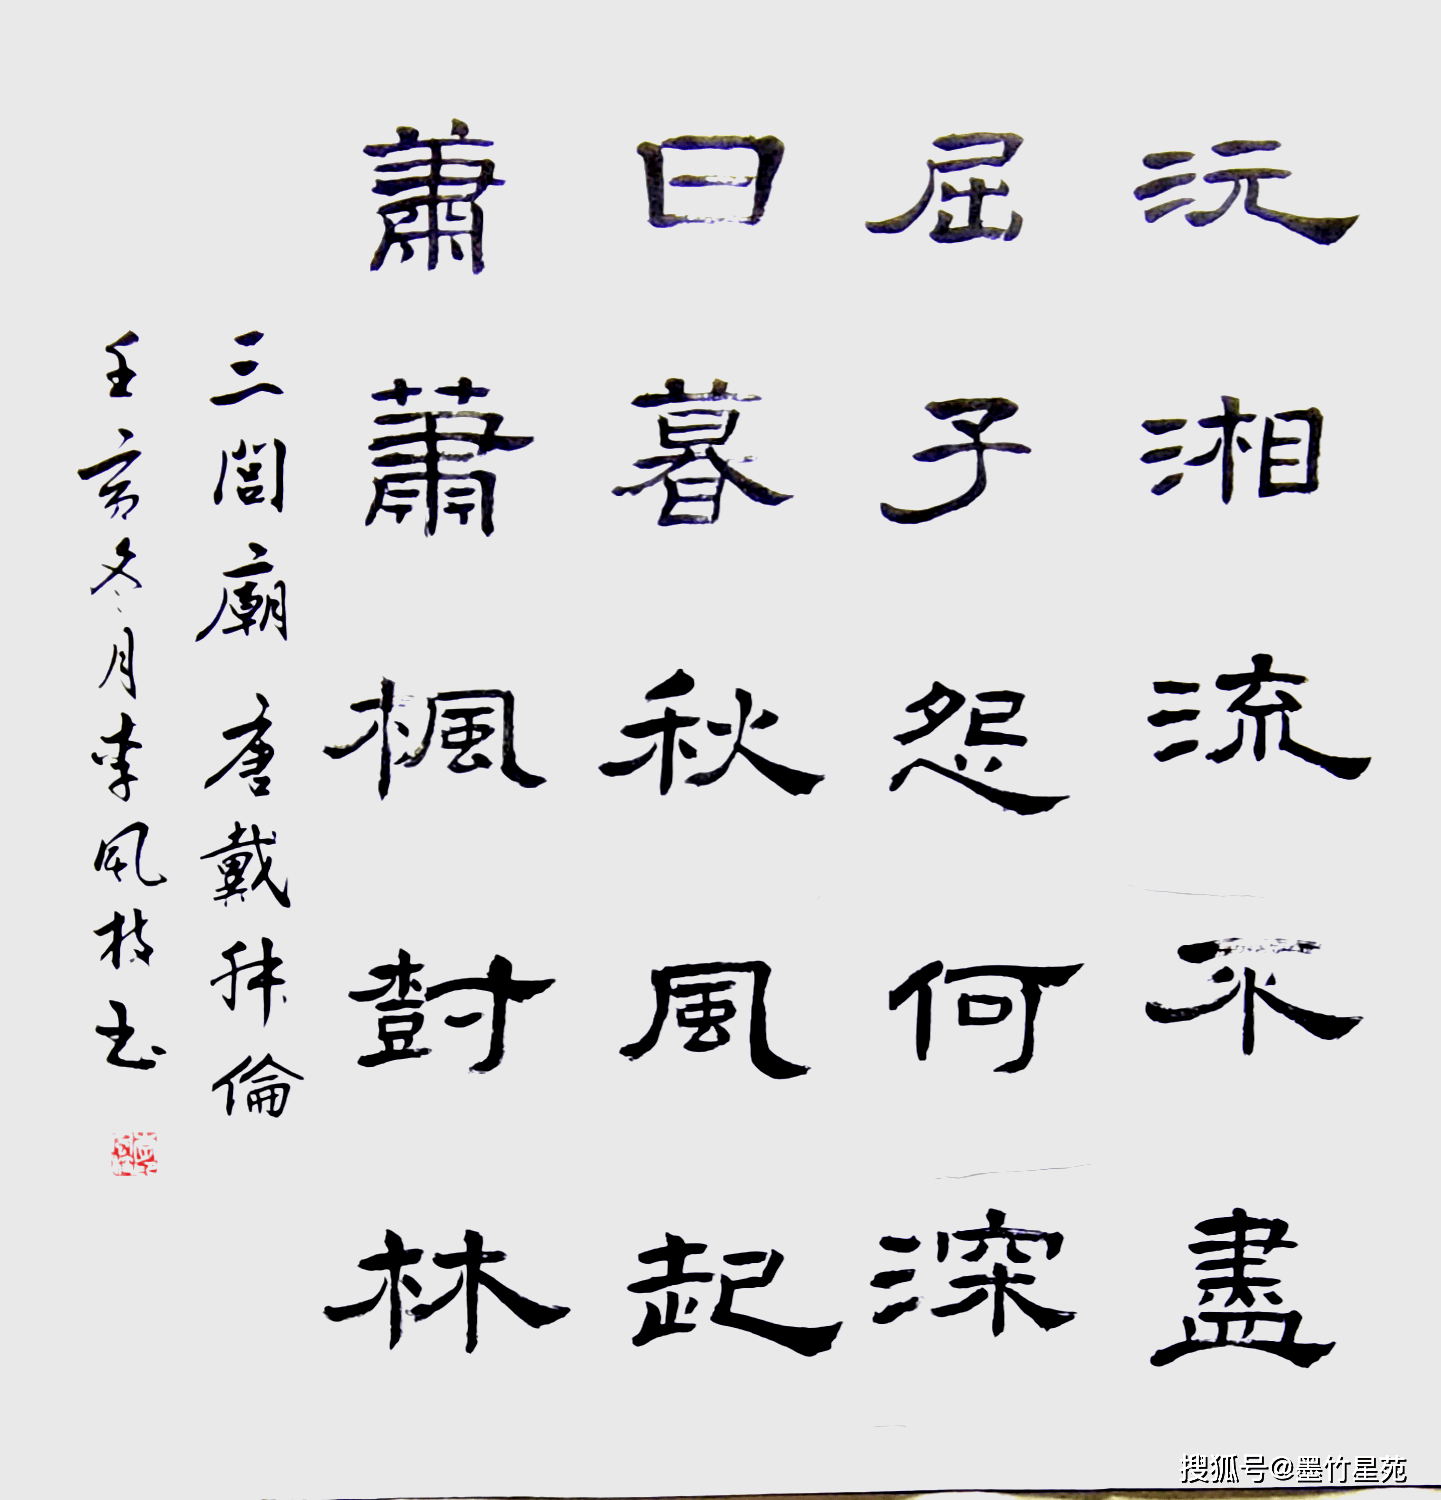 沅湘流不盡
屈子怨何深
日暮秋風起
蕭蕭楓樹林
三閭廟 唐 戴叔倫
壬寅冬月李枝书
搜狐号@墨竹星苑